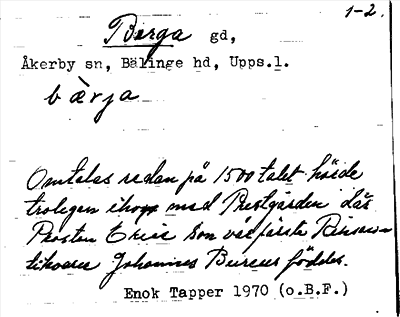 1-2.
Berga gd,
Åkerby sn, Bälinge hd, Upps.l.
bærja
Omtalas redan på 1500 talet hörde
troligen ihop med Prestgården där
Prosten Erics son vår första Riksan-
tikvarie Johannes Bureus föddes.
Enok Tapper 1970 (o.B.F.)